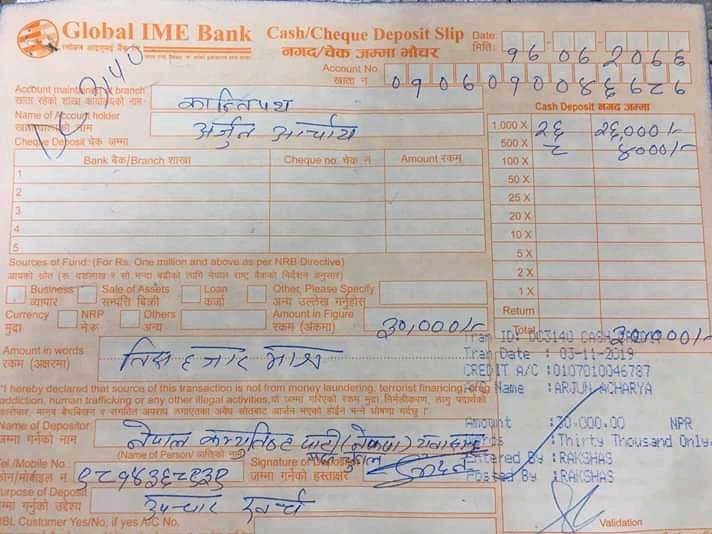 Global IME Bank Cash/Cheque Deposit Slip Date:
ग्लोबल आइएमई बैंक लि. नगद/चेक जम्मा भौचर मिति:
Account No.
खाता नं
Account maintained at branch
खाता रहेको शाखा कार्यालयको नाम: कान्तिपथ
Name of Account holder
खातावालाको नाम: अर्जुन आचार्य
Cheque Deposit चेक जम्मा
Cash Deposit नगद जम्मा
1,000 X २६ २६,०००/-
500 X ८ ४०००/-
100 X
50 X
25 X
20 X
10 X
5 X
2 X
1 X
Return
Total 30,000/-
Bank बैंक/Branch शाखा Cheque no. चेक नं Amount रकम
1
2
3
4
5
Sources of Fund: (For Rs. One million and above as per NRB Directive)
आयको स्रोत (रू दशलाख र सो भन्दा बढीको लागि नेपाल राष्ट्र बैंकको निर्देशन अनुसार)
Business Sale of Assets Loan Other, Please Specify
व्यापार सम्पत्ति बिक्री कर्जा अन्य उल्लेख गर्नुहोस्
Currency NRP Others Amount in Figure
मुद्रा नेरू अन्य रकम (अंकमा) 30,000/-
Amount in words
रकम (अक्षरमा) तिस हजार मात्र
"I hereby declared that source of this transaction is not from money laundering, terrorist financing,
addiction, human trafficking or any other illegal activities.
Name of Depositor
जम्मा गर्नेको नाम नेपाल कम्युनिष्ट पार्टी (नेकपा)
(Name of Person/ व्यक्तिको नाम)
Tel./Mobile No. Signature of Depositor
फोन/मोबाईल नं जम्मा गर्नेको हस्ताक्षर
Purpose of Deposit
जम्मा गर्नुको उद्देश्य उपचार खर्च
IBL Customer Yes/No, if yes A/C No.
Tran Date : 03-11-2019
CREDIT A/C :0107010046787
Name :ARJUN ACHARYA
Amount :30,000.00 NPR
:Thirty Thousand Only.
Entered By :RAKSHAS
Posted By :RAKSHAS
Validation